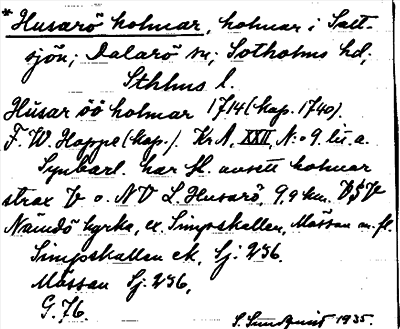 *Husarö holmar, holmar i Salt-
sjön; Dalarö sn; Sotholms hd;
Sthlms l.
Husar öö holmar 1714 (kop. 1740).
F. W. Hoppe (kop.) Kr A, XXII, N:o 9 lit. a.
Synbarl. har fl. avsett holmar
strax V o. NV L. Husarö, 9,9 km. VSV
Nämdö kyrka, ex. Simpskallen, Måssan m. fl.
Simpskallen ek. Sj: 256.
Måssan Sj: 256,
G. 76.
S. Sundquist 1935.